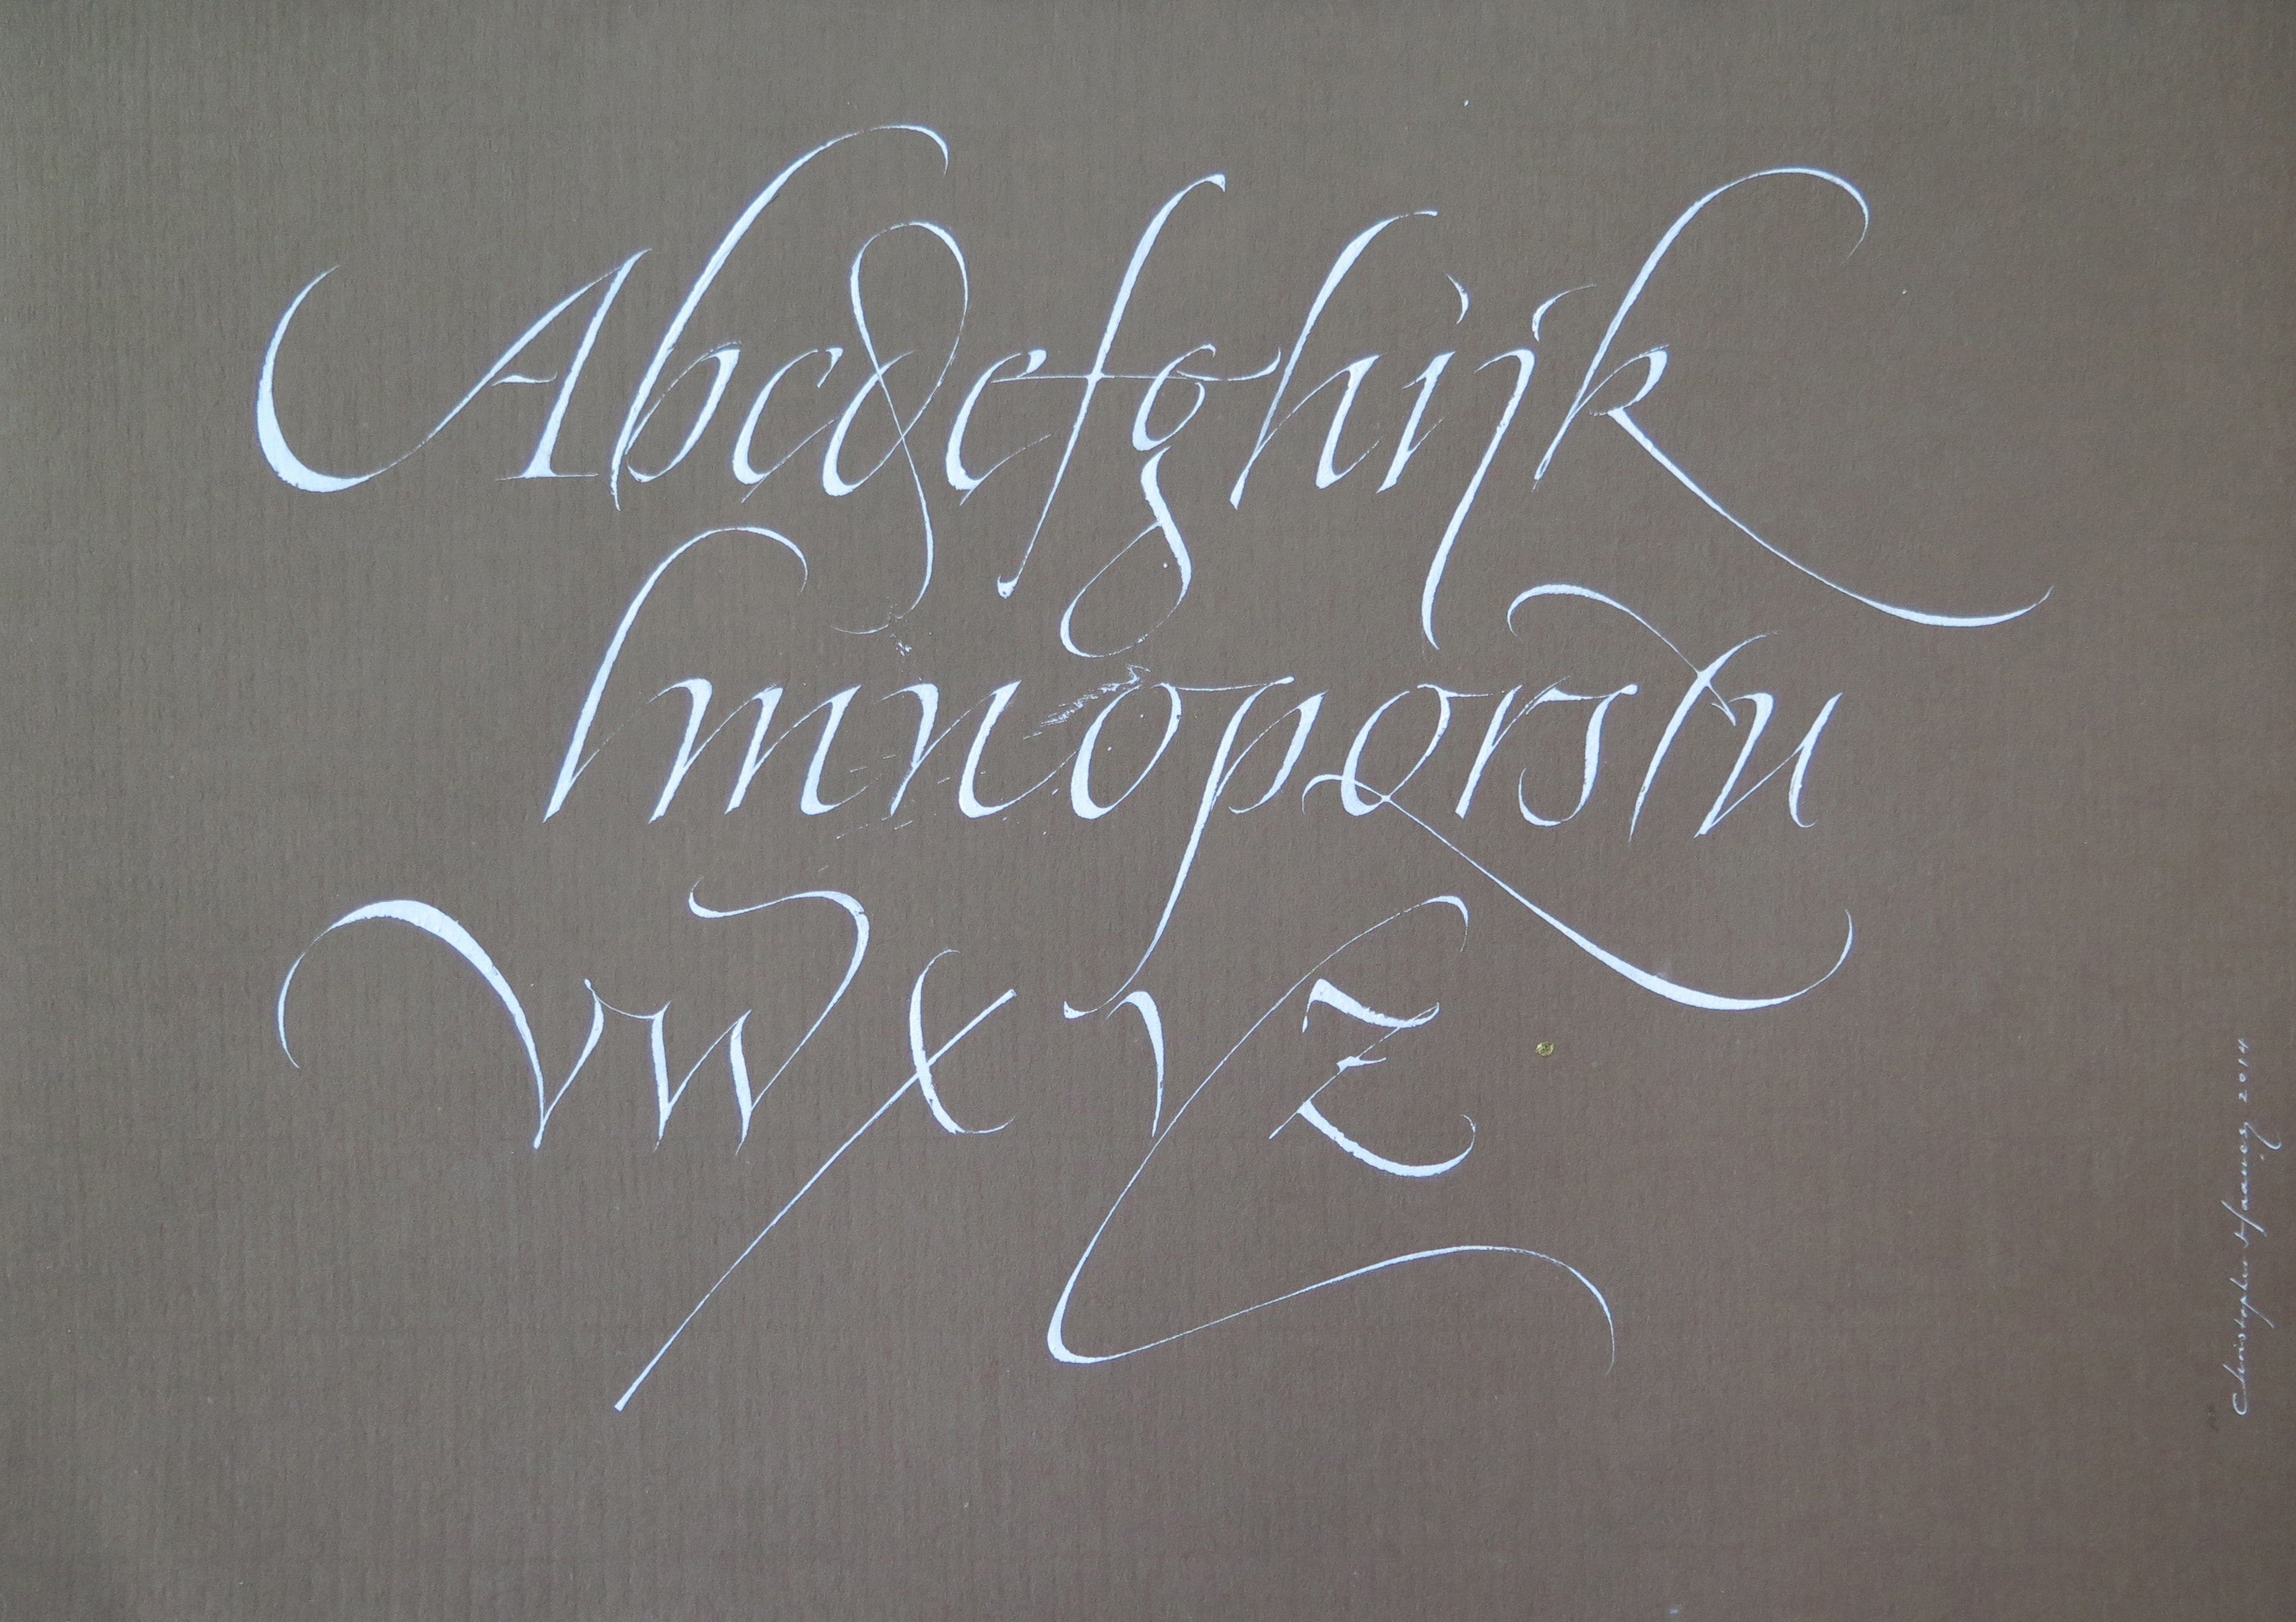 Abcdefghijk
lmnopqrstu
vwxyz
Christopher Haanes 2014